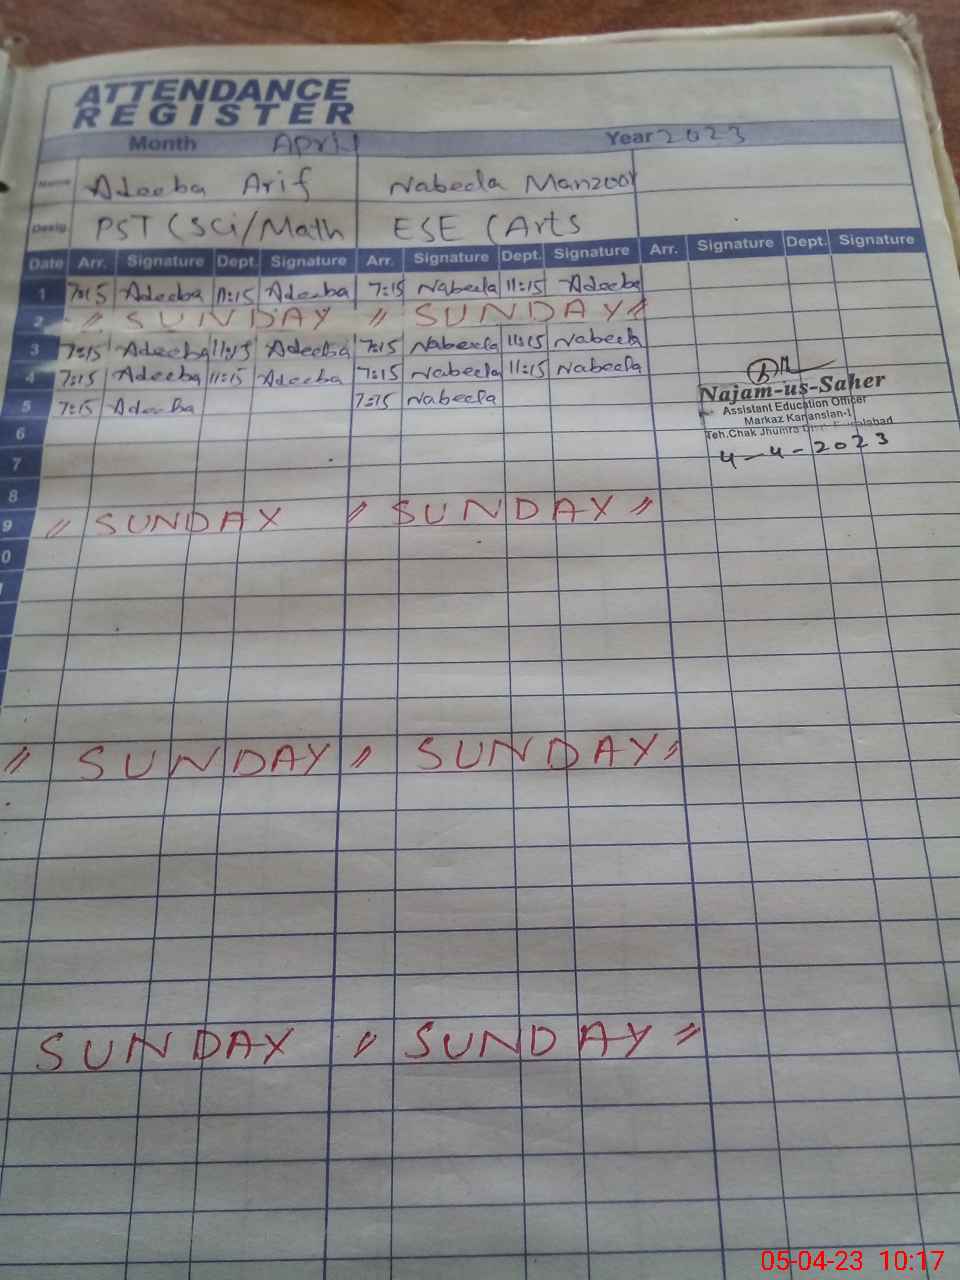 ATTENDANCE
REGISTER
Month April Year 2023
Name Adeeba Arif Nabeela Manzoor
Desig. PST (Sci/Math ESE (Arts
Date Arr. Signature Dept. Signature Arr. Signature Dept. Signature Arr. Signature Dept. Signature
1 7:15 Adeeba 11:15 Adeeba 7:15 Nabeela 11:15 Adeeba
2 〃 SUNDAY 〃 SUNDAY 〃
3 7:15 Adeeba 11:15 Adeeba 7:15 Nabeela 11:15 Nabeela
4 7:15 Adeeba 11:15 Adeeba 7:15 Nabeela 11:15 Nabeela
5 7:15 Adeeba 7:15 Nabeela
Najam-us-Saher
Assistant Education Officer
Markaz
Teh. Chak Jhumra
4-4-2023
6
7
8
9 〃 SUNDAY 〃 SUNDAY 〃
0
〃 SUNDAY 〃 SUNDAY 〃
SUNDAY 〃 SUNDAY 〃
05-04-23 10:17